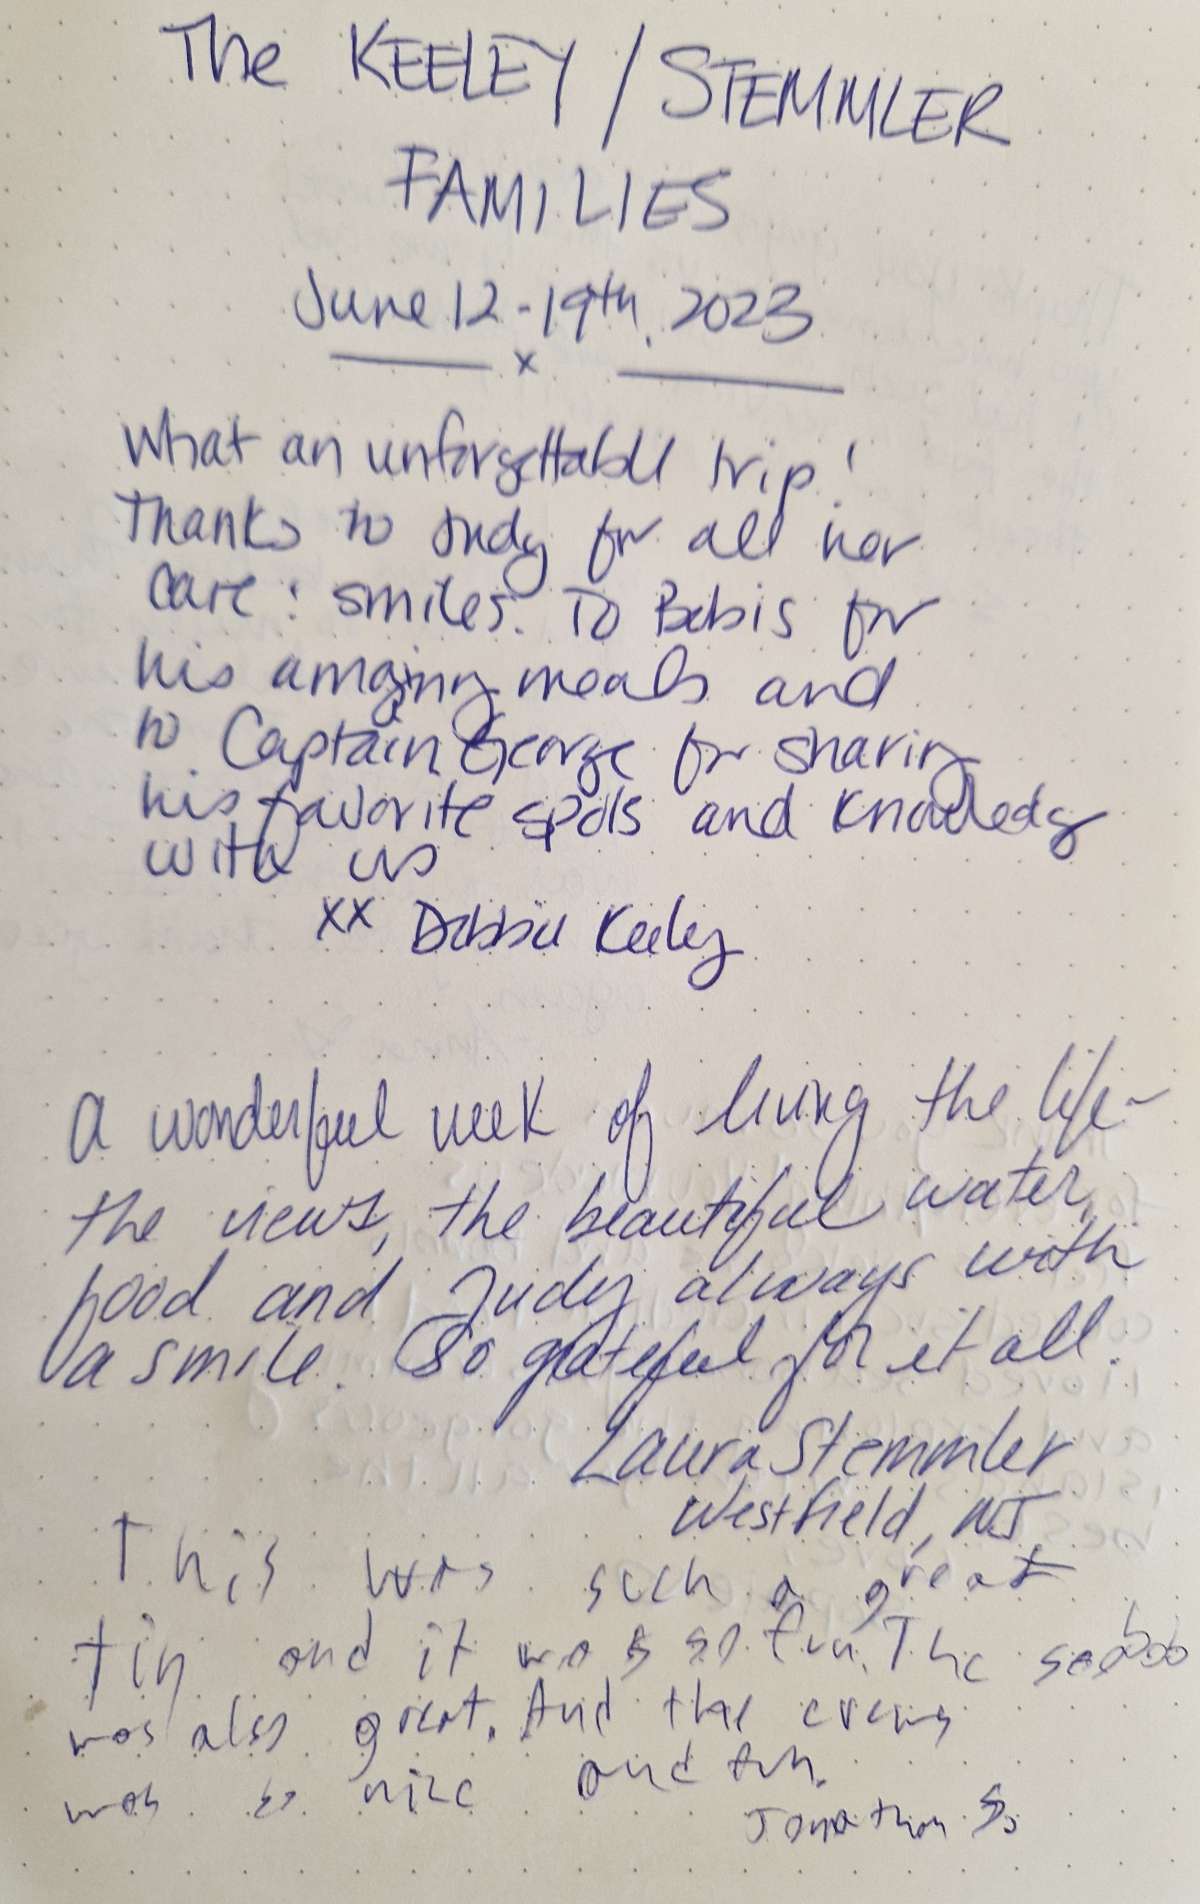 The KEELEY / STEMMLER
FAMILIES
June 12 - 19th, 2023
x
What an unforgettable trip!
Thanks to Judy for all her
care : smiles. To Babis for
his amazing meals and
to Captain George for sharing
his favorite spots and knowledg
with us
xx Debbie Keeley
A wonderful week of living the life-
the views, the beautiful water,
food and Judy always with
a smile. So grateful for it all.
Laura Stemmler
Westfield, NJ
This was such a great
and it was so fun. The seabob
was also great. And the
was so nice and fun.
Jonathan S.